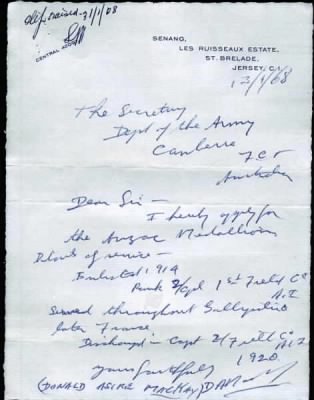 raised 31/1/68
CENTRAL
SENANG,
LES RUISSEAUX ESTATE,
ST. BRELADE,
JERSEY, C.I.
13/1/68
The Secretary
Dept of the Army
Canberra
A.C.T
Australia
Dear Sir —
I hereby apply for
the Anzac Medallion
Details of service —
Enlisted: 1914
Rank 2/Cpl 1st Field Co
A.I.F
Served throughout Gallipoli
later France.
Discharged — Capt 2/Field Co
A.I.F
1920
Yours faithfully
(DONALD MACKAY)